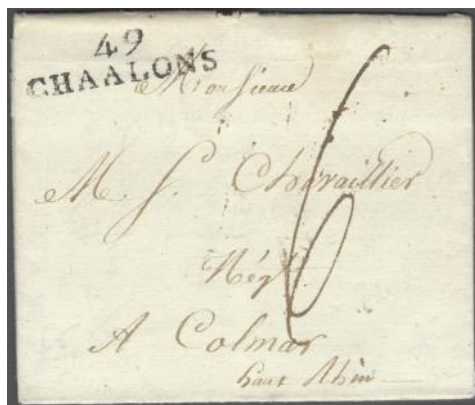 49
CHAALONS
Monsieur
M. S. Chevaillier
Négt.
A Colmar
haut Rhin
6